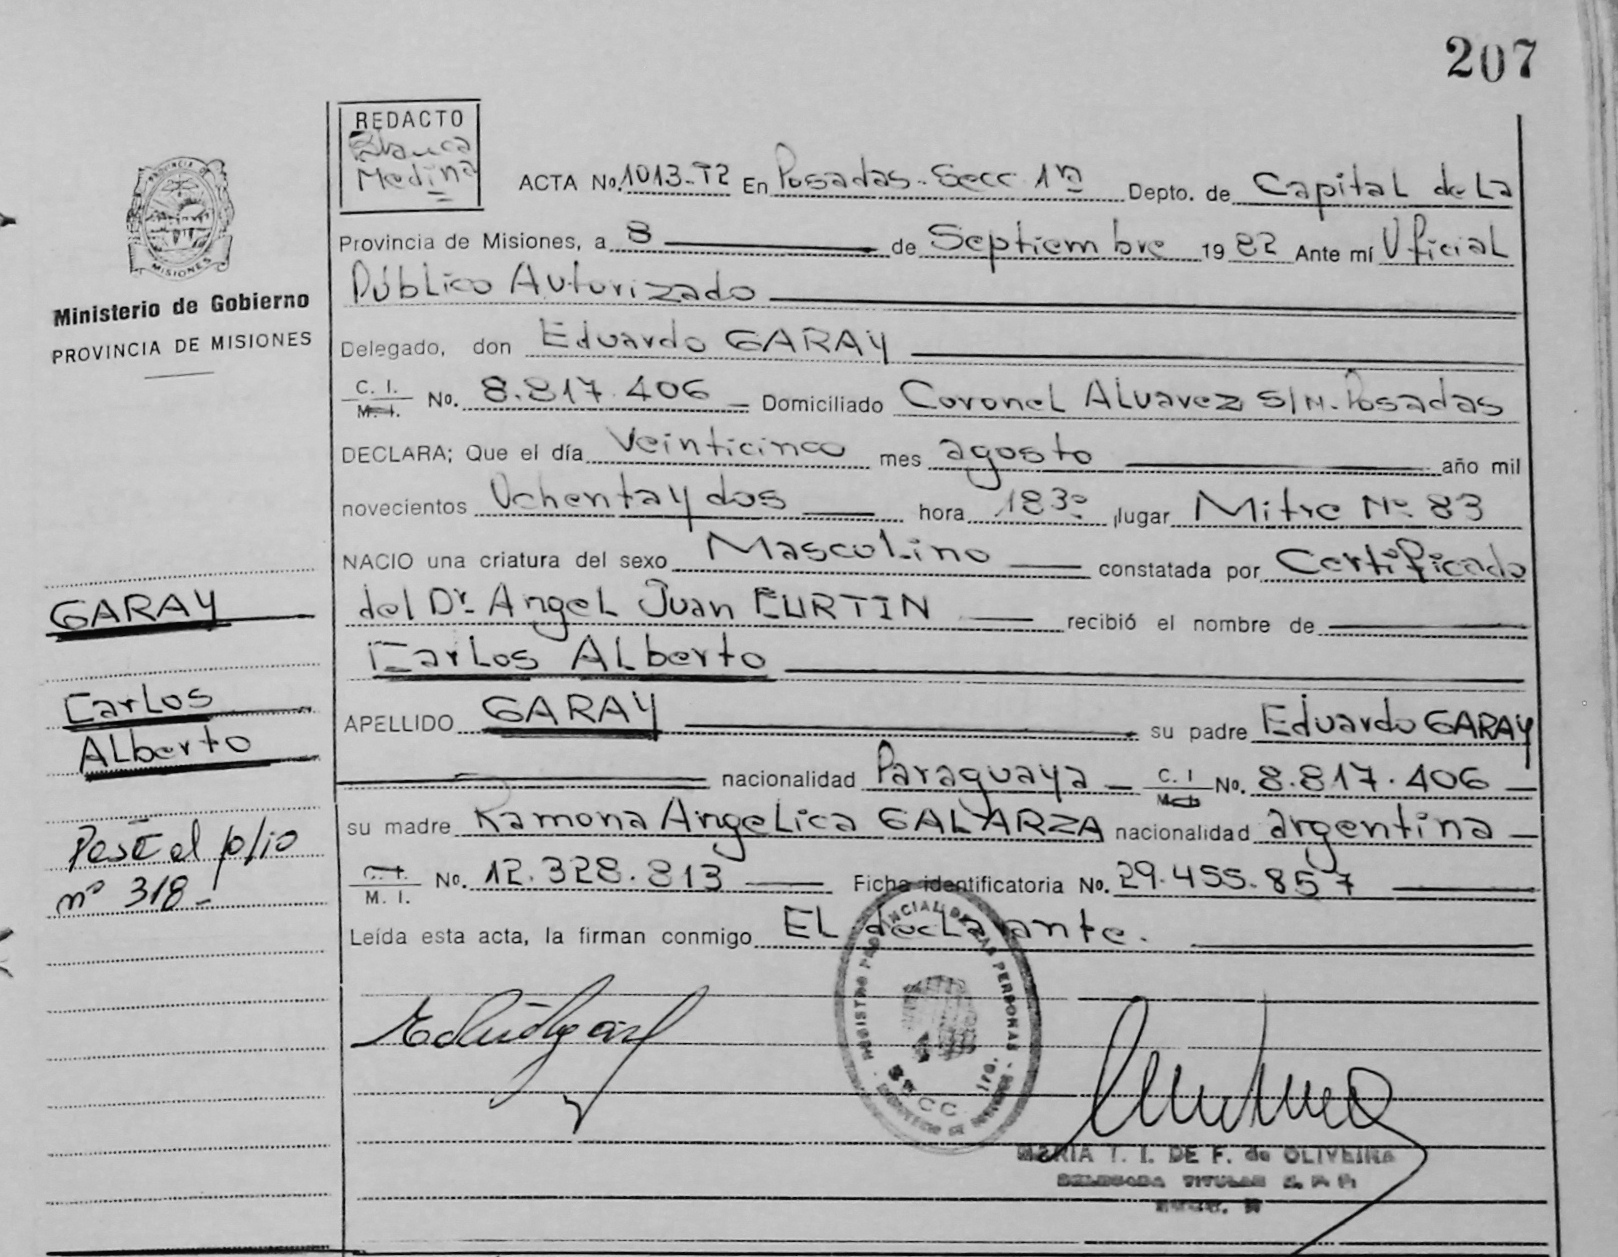 207
REDACTO
Blanca
Medina
ACTA No. 1013-T2 En Posadas-Secc 1ra Depto. de Capital de La
Provincia de Misiones, a 8 de Septiembre 1982 Ante mí Oficial
Público Autorizado
Delegado, don Eduardo GARAY
C. I. M. I. No. 8.817.406 Domiciliado Coronel Alvarez s/n. Posadas
DECLARA; Que el día Veinticinco mes agosto año mil
novecientos Ochenta y dos hora 18:30 ,lugar Mitre No. 83
NACIO una criatura del sexo Mascolino constatada por Certificado
del Dr. Angel Juan CURTIN recibió el nombre de
Carlos Alberto
APELLIDO GARAY su padre Eduardo GARAY
nacionalidad Paraguaya C. I. No. 8.817.406
su madre Ramona Angelica GALARZA nacionalidad argentina
M. I. No. 12.328.813 Ficha identificatoria No. 29.455.857
Leída esta acta, la firman conmigo EL declarante.
PROVINCIA DE
MISIONES
Ministerio de Gobierno
PROVINCIA DE MISIONES
GARAY
Carlos
Alberto
Pase al folio
nº 318-
REGISTRO PROVINCIAL DE LAS PERSONAS
SECC. 1ra.
MARIA T. I. DE F. de OLIVEIRA
DELEGADA TITULAR R. P. P.